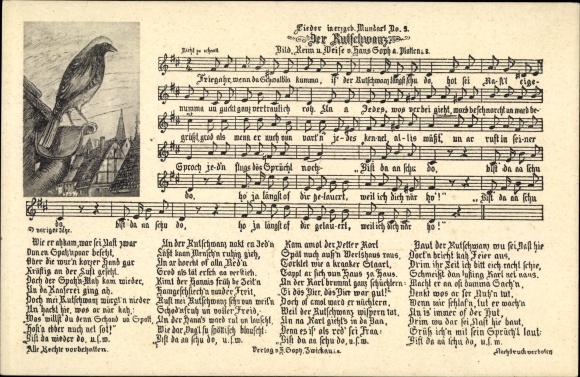 Lieder in erzgeb. Mundart No. 3.
Der Rutschwanz
Nicht zu schnell.
Bild, Reim u. Weise v. Hans Soph a. Platten i. B.
Friegahr, wenn da Schwalbla kumma, is' der Rutschwanz längst schu do, hot sei Nast'l eige-
numma un guckt ganz vertraulich roh. Un a Jedes, wos verbei gieht, werd beschnorcht un werd be-
grüßt, grod als wenn er noch vun vort'n je-des kenne allis müßt', un ar rust in sei-ner
Sproch je-d'n flugs dös Sprüchl noch: Bist da aa schu do, bist da aa schu
do, ho ja längst of dir gelauert, weil ich dich når ho!" Bist da aa schu
do, bist da aa schu do, ho ja längst of dir gelau-ert, weil ich dich når ho!
D voriges Ihr.
Wie er ahkam, war sei Nast zwar
Vun en Spatzupoor besetzt,
Ober die wur'n korzer Hand gar
Kräftig an der Luft gesetzt.
Doch der Spatz-Mah kam wieder,
Un da Kaaferei ging ah.
Doch mei Rutschwanz würgt'n nieder
Un hackt hie, wos ar når kah:
Was willst du denn Schand un Spott,
Host's ether noch net sot!"
Bist da wieder do, u.s.w.
Un der Rutschwanz nakt en Jed'n
Läßt kaan Mensch'n ruhig gieh,
Un ar baarkt of alle Red'n
Grod als tät erſch aa verstieh.
Kimt der Hannis früh be Zeit'n
Hamgeschlierft vun der Freit,
Ruft mei Rutschwanz schu vun weit'n
Schod'nfruh un voller Freid,
Un der Hana's ward rut un lauscht,
Wie dar Vug'l su spöttisch plauscht.
Bist da aa schu do, u.s.w.
Kam amol der Vetter Karl
Spät nuch aus'n Wertshaus raus,
Torklet wie a kranker Staarl,
Tappt ar sich vun Haus ze Haus.
An der Karl brummt ganz schüchtern:
Gi dös Bier, dös Bier war gut!"
Doch of amol ward er nüchtern,
Weil der Rutschwanz wispern tot.
Un na Karl gieht's in da Baa,
Denn es is' als red' sei Fraa:
"Bist da aa schu do, u.s.w.
Baut der Rutschwanz wu sei Nast hie
Dort'n bricht kah Feier aus,
Drim ihr Leit ich bitt eich racht schie,
Schmeißt dan lusting Karl net naus.
Macht er aa ost dumma Sach'n,
Denkt wos er fer Nutz'n tut,
Wenn mir schlof'n, tut er wach'n
Un is' immer of der Hut,
Drim wu dar sei Nast hie baut,
Grüß ich'n mit sen Sprüch'l laut:
Bist da aa schu do, u.s.w.
Alle Rechte vorbehalten.
Verlag v. F. Soph, Zwickau i. S.
Nachdruck verboten